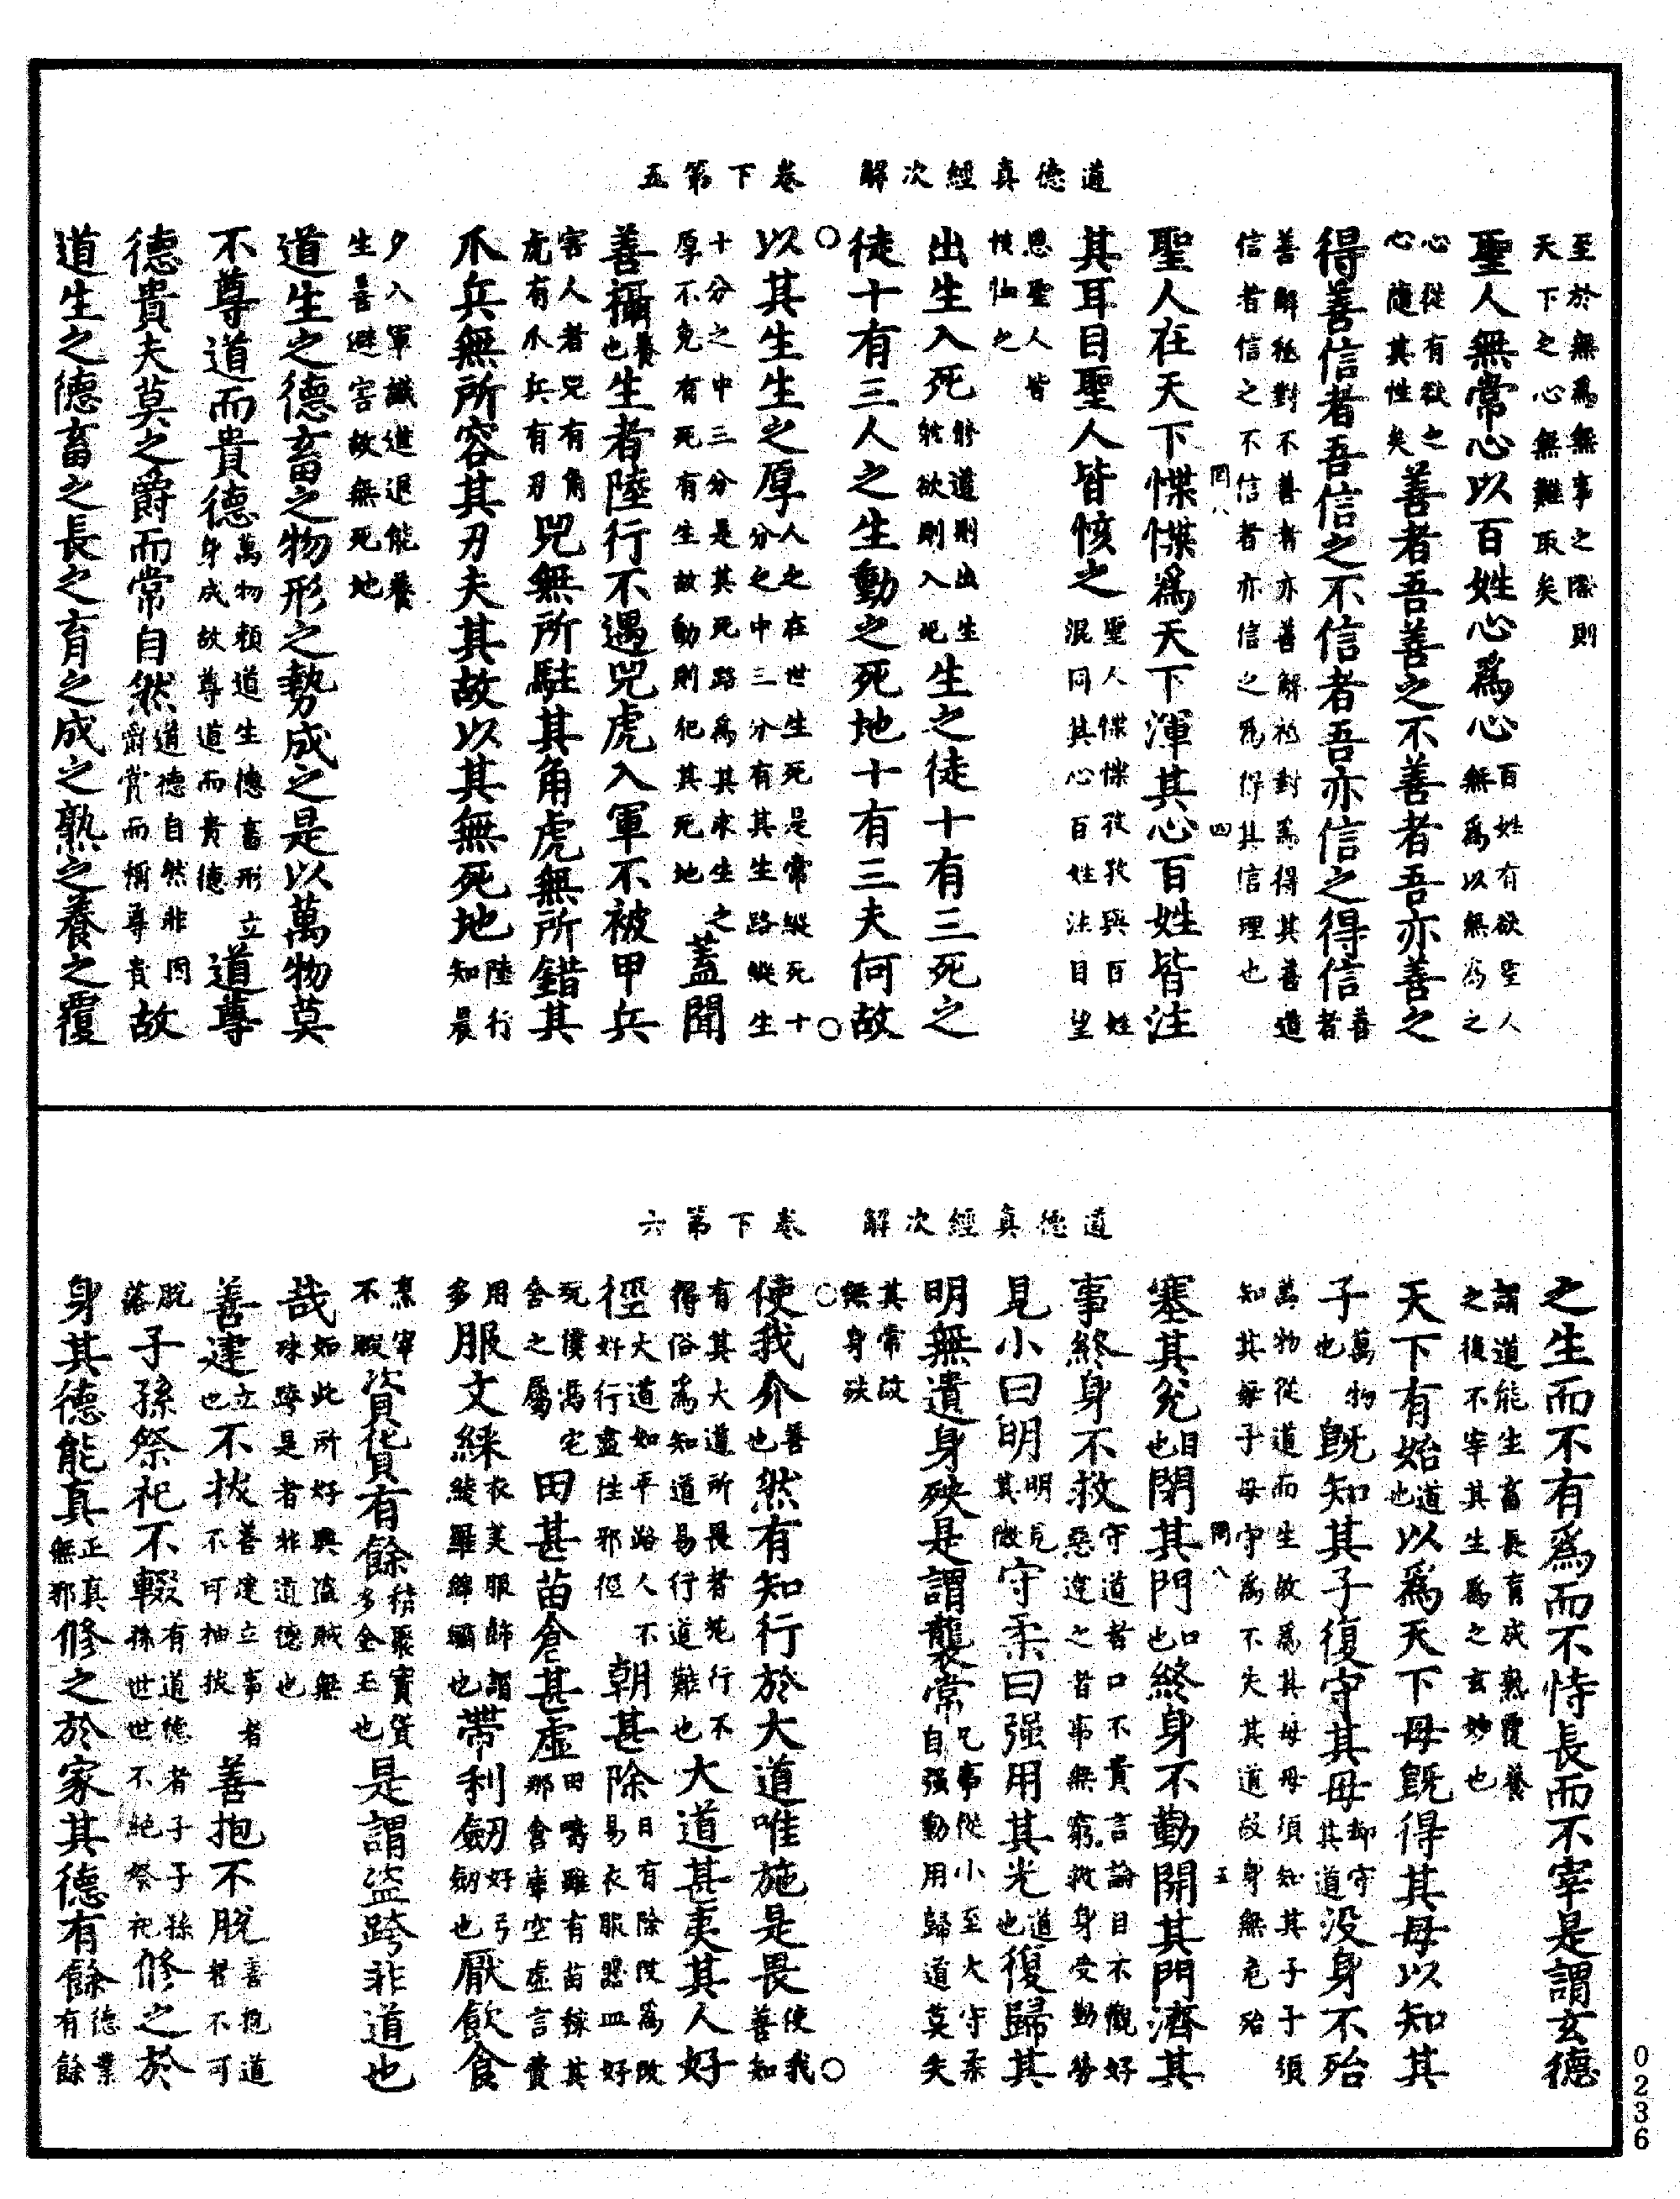 道德真經次解　卷下第五
至於無為無事之際則
天下之心無難取矣
聖人無常心以百姓心為心百姓有欲聖人無為以無為之
心從有欲之心隨其性矣善者吾善之不善者吾亦善之
得善信者吾信之不信者吾亦信之得信善者
善解秖對不善者亦善解秖對為得其善道
信者信之不信者亦信之為得其信理也
罔八　四
聖人在天下惵惵為天下渾其心百姓皆注
其耳目聖人皆咳之聖人惵惵孜孜與百姓混同其心百姓注目望
恩聖人皆
恤之
出生入死解道則出生欲則入死生之徒十有三死之
徒十有三人之生動之死地十有三夫何故
以其生生之厚人之在世生死是常縱死十分之中三分有其生路縱生
十分之中三分是其死路為其求生之
厚不免有死有生故動則犯其死地蓋聞
善攝養也生者陸行不遇兕虎入軍不被甲兵
害人者兕有角
虎有爪兵有刃兕無所駐其角虎無所錯其
爪兵無所容其刃夫其故以其無死地陸行知晨
夕入軍識進退能養
生善避害故無死地
道生之德畜之物形之勢成之是以萬物莫
不尊道而貴德萬物賴道生德畜形立身成故尊道而貴德道尊
德貴夫莫之爵而常自然道德自然非因爵賞而稱尊貴故
道生之德畜之長之育之成之熟之養之覆
道德真經次解　卷下第六
之生而不有為而不恃長而不宰是謂玄德
謂道能生畜長育成熟覆養
之後不宰其生為之玄妙也
天下有始道也以為天下母既得其母以知其
子萬物也既知其子復守其母却守其道没身不殆
萬物從道而生故為其母母須知其子子須
知其母子母守為不失其道故身無危殆
塞其兌目也閉其門口也終身不勤開其門濟其
罔八　五
事終身不救守道者口不貴言論目不觀好惡違之者事無窮救身受勤勞
見小曰明明見其微守柔曰强用其光道也復歸其
明無遺身殃是謂襲常凡事從小至大守柔自强動用歸道莫失
其常故
無身殃
使我介善也然有知行於大道唯施是畏使我善知
有其大道所畏者施行不
得俗為知道易行道難也大道甚夷其人好
徑大道如平路人不好行盡往邪徑朝甚除日有除改為改易衣服器皿好
玩㒒馬宅
舍之屬田甚苗倉甚虛田疇雖有苗稼其那倉庫空虛言費
用多服文綵衣美服飾謂綾羅錦繡也帶利劒好弓劒也厭飲食
烹宰
不暇資貨有餘積聚寶貨多金玉也是謂盜跨非道也
哉如此所好與盜賊無殊跨是者非道德也
善建立也不拔善建立事者不可抽拔善抱不脫善抱道者不可
脫
落子孫祭祀不輟有道德者子子孫孫世世不絕祭祀修之於
身其德能真正真無邪修之於家其德有餘德業有餘
0236